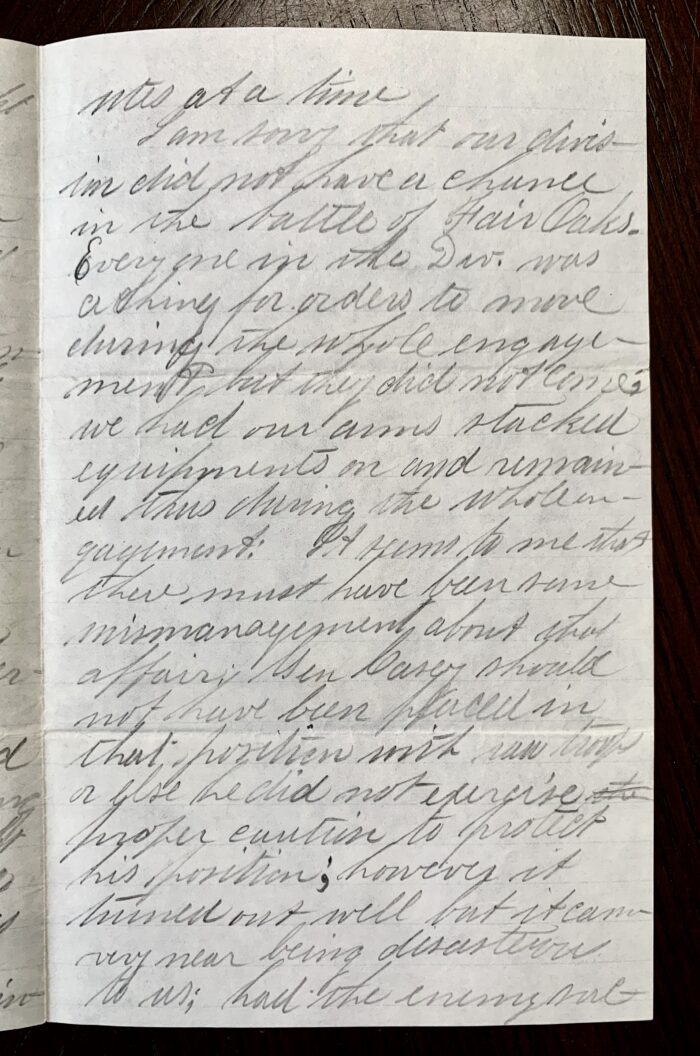 utes at a time
I am sorry that our divis-
ion did not have a chance
in the battle of Fair Oaks.
Everyone in the Div. was
itching for orders to move
during the whole engage-
ment but they did not come;
we had our arms stacked
equipments on and remain-
ed thus during the whole en-
gagement. It seems to me that
there must have been some
mismanagement about that
affair; Gen Casey should
not have been placed in
that position with raw troops
or else he did not exercise the
proper caution to protect
his position; however it
turned out well but it came
very near being disasterous
to us; had the enemy suc-